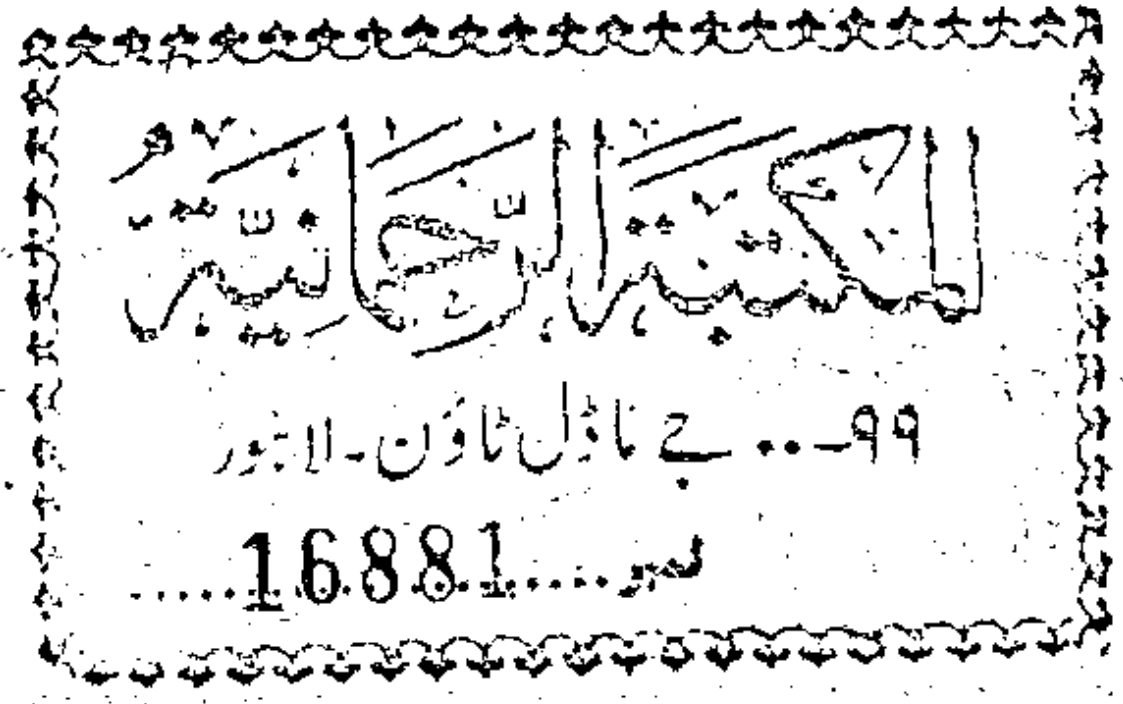 المکتبۃ الرحمانیۃ
۹۹ــ۰۰ جے ماڈل ٹاؤن ۔ لاہور
نمبر....16881....